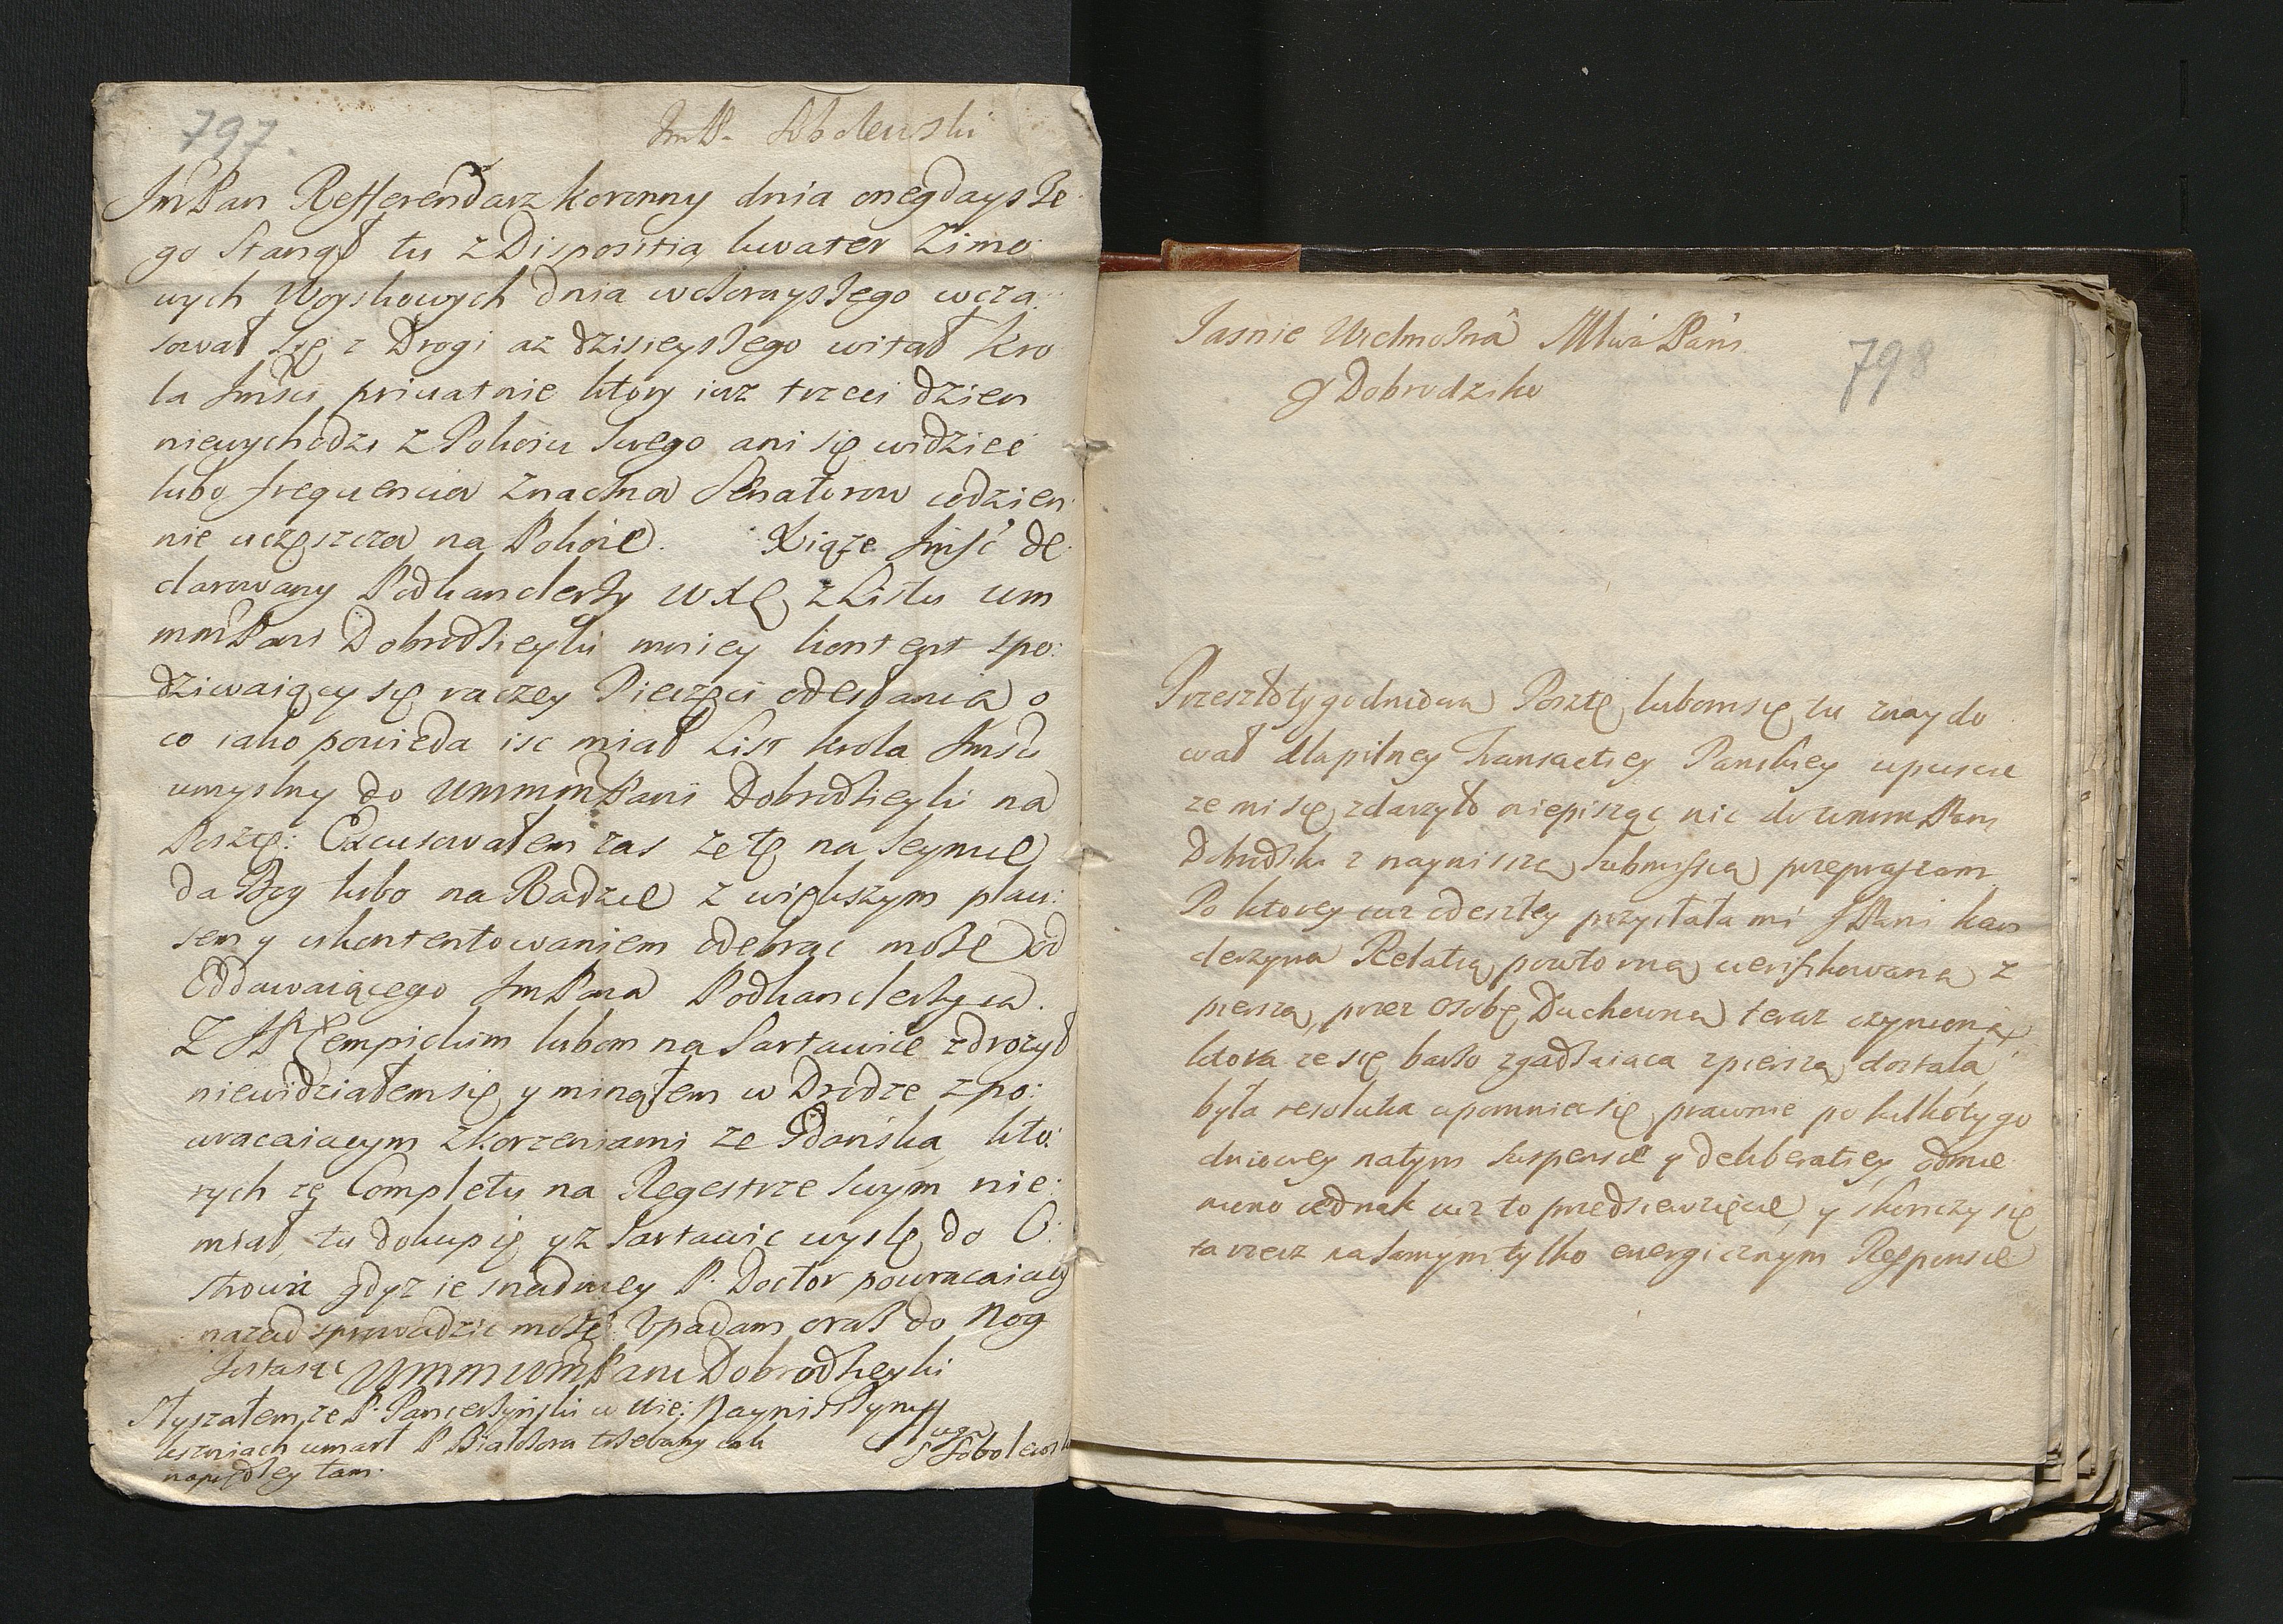 797.
JmP. Sobolewski
JmPan Refferendarz koronny dnia onegdaysze
go Stanął tu z Dispositią kwater Zimo
wych Woyskowych dnia wczorayszego wcza
sował się z Drogi az dzisieyszego witał Kro
la Jmsci priuatnie ktory iuz trzeci dzien
niewychodzi z Pokoiu swego ani się widziec
lubo frequencia znaczna Senatorow codzien
nie uczęszcza na Pokoie. Xiąze Jmść de
clarowany Podkanclerzy WXL z Listu um
mmPani Dobrodzieyki mniey kontent spo:
dziwaiący się raczey Pieczęci odesłania o
co iako powieda isc miał List krola Jmsci
umyslny do UmmmmPani Dobrodzieyki na
Posztę: Excusowałem zas ze tę na Seymie
da Bog lubo na Radzie z większym plau:
sem y ukontentowaniem odebrac moze od
Oddawaiącego JmPana Podkanclerzyca.
Z JP Kempickim lubom na Sartawice zdrozył
niewidziałem się y minąłem w Drodze z po:
wracaiącym z korzeniami ze Gdańska kto:
rych ze Completu na Regestrze swym nie:
miał, tu dokupię y z Sartawic wyslę do O:
strowa gdyz ie snadniey P. Doctor powracaiący
nazad sprowadzic moze: Upadam oraz do Nog
Zostaiąc UmmmmPani Dobrodzieyki
Słyszałem, ze P. Pancerzynski w Wie: Naynizszym
luzniach umarł P. Białozora
Sługa
napiędzey tam.
JSobolewski
Jasnie Wielmozna Młwa Pani
y Dobrodziko
798
Przeszłotygodniową Posztę lubom się tu znaydo
wał dla pilney Transactiey Panskiey upuscic
ze mi się zdarzyło niepisząc nic do UmmmPani
Dobrodziki z nayniszszą submissią przepraszam,
Po ktorey iuz odeszłey przysłała mi JPani kan
clerzyna Relatią powtorną werifikowaną z
pierszą, przez Osobę Duchowną teraz czynioną,
ktora ze się bardzo zgadzaiąca z pierszą dostała,
była resoluta upomniec się prawnie po kilkotygo
dniowey na tym suspensie y deliberatiey, odmie
niono iednak iuz to przedsiewzięcie, y skonczy się
ta rzecz na samym tylko energicznym Responsie